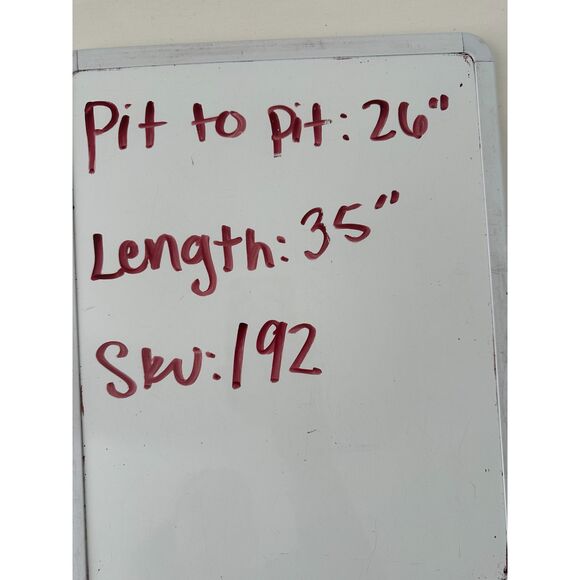 Pit to pit: 26"
Length: 35"
Sku: 192